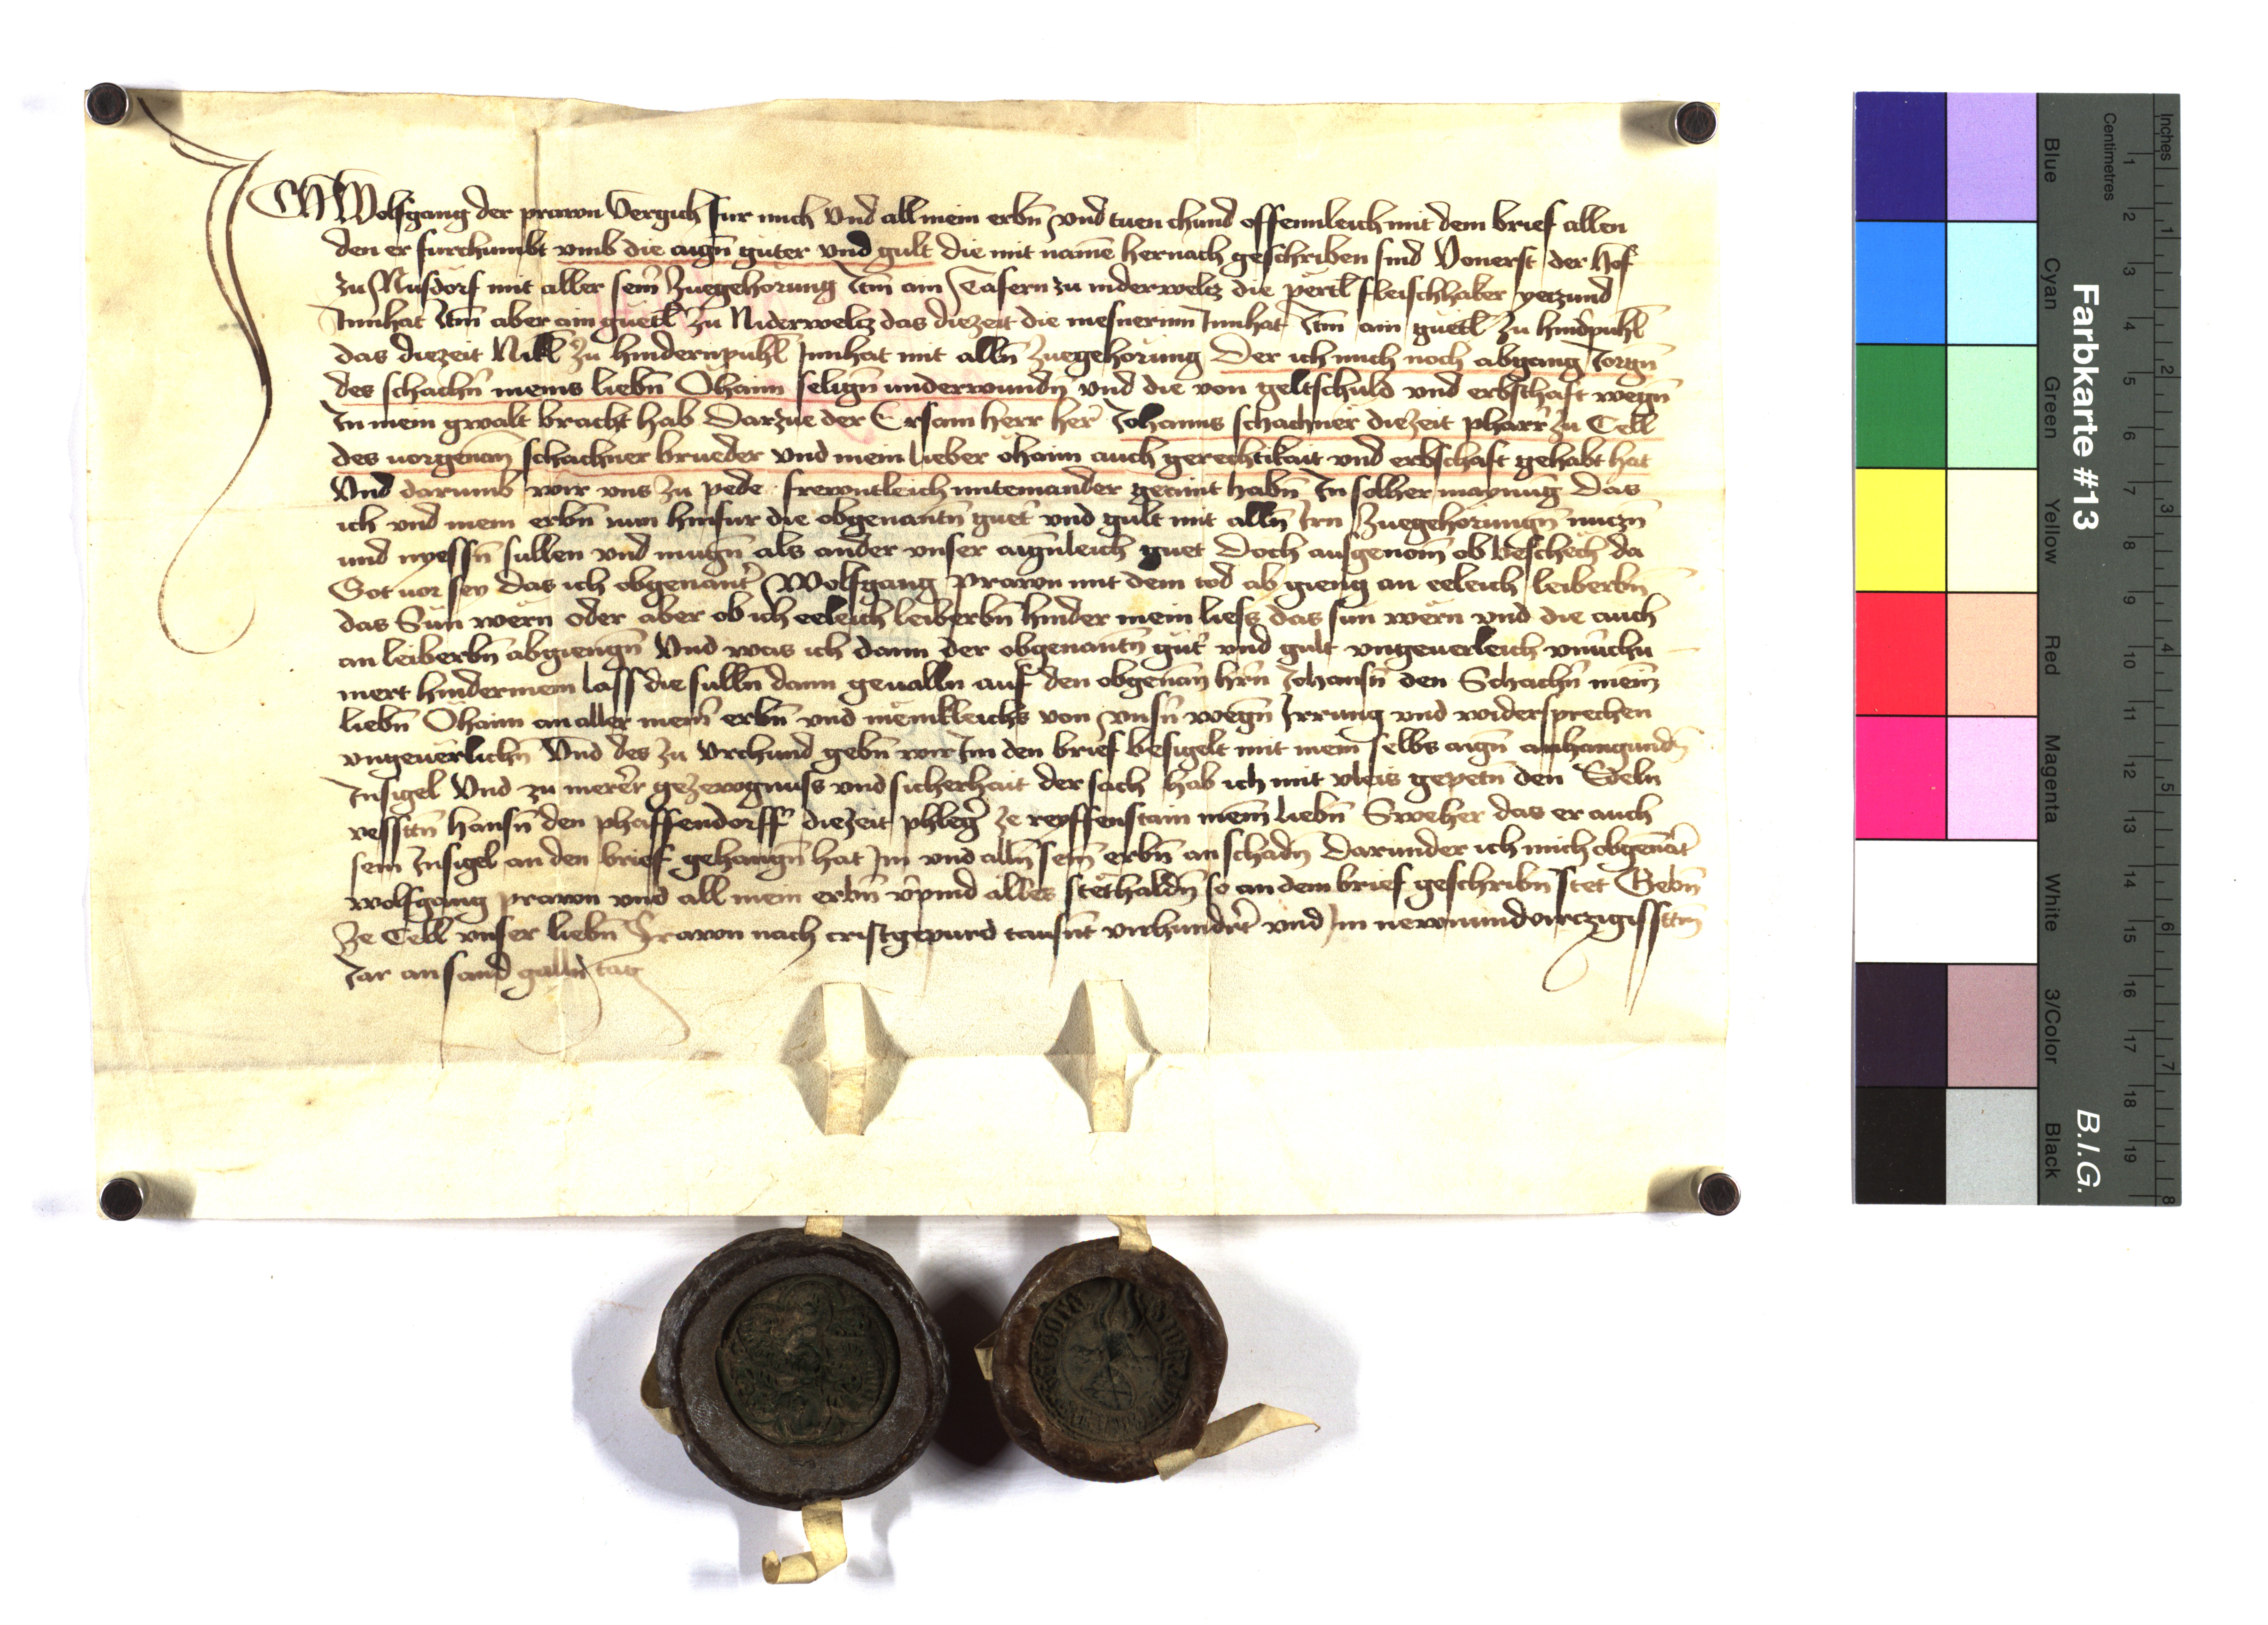 ICH Wolfgang der prawn Vergich fur mich Vnd all mein erbn̄ vnd tuen chund offennleich mit dem brief allen
den er furchumbt vmb die aign̄ guter vnd gult die mit namē hernach geschriben sind Vonerst der Hof
zu Nusdorf mit aller seiñ Zuegehorung Itm̄ ain Tafern zu niderweltz die pertl fleischhaker yetzund
Innhat Itm̄ aber ain guetl Zu Niderweltz das diezeit die mesnerinn Innhat Itm̄ ain guetl Zu hindpuhl
das diezeit Nikl Zu hindernpuhl Innhat mit alln̄ Zuegehorung Der ich mich noch abgang Jorgn̄
des schachn̄ meins liebn̄ Ohaim selign̄ underwundn̄ vnd die von geltschuld vnd erbschaft wegn̄
In mein gwalt bracht hab Darzue der Ersam herr her̄ Johanns schachner diezeit pharr̄ Zu Cell
des uorgenan̄ schachner brueder vnd mein lieber ohaim auch gerechtikait vnd erbschaft gehabt hat
Vnd darumb wir vns zu pede frewntleich miteinander geaint habn̄ In solher maynung Das
ich vnd mein erbn̄ nun hinfur die obgenantn̄ guet̄ vnd gult mit alln̄ Irn Zuegehorungn̄ nuczn̄
und nyessn̄ sullen vnd mugn̄ als ander vnser aignleich guet Doch ausgenom̄ ob beschech da
Got uor sey das ich obgenant̄ Wolfgang Prawn mit dem tod ab gieng an eeleich leiberbn̄
das Sun wern oder aber ob ich eeleich leiberbn̄ hinder mein liess das sun wern vnd die auch
an leiberbn̄ abgiengn̄ Vnd was ich dann der obgenantn̄ gut̄ vnd gult vngeuerleich
mert hindermein lass die sulln̄ dann geualln auf den obgenan̄ hr̄n Johansn̄ den Schachn̄ meim̄
liebn̄ Ohaim an aller meiñ erbn̄ vnd menikleichs von vnsn̄ wegn̄ Irrung vnd widersprechen
vngeuerlichn̄ Vnd des zu Vrchund gebn̄ wir Im den brief besigelt mit meim̄ selbs aign̄ anhangundn̄
Insigel Vnd zu merer̄ gezewgnuss vnd sicherhait der sach hab ich mit vleis gepetn̄ den Edeln
vesstn̄ Hansn̄ den phaffendorff̄ diezeit phleḡ ze reyffenstain meim̄ liebn̄ Sweher das er auch
sein Insigel an den brief gehangn̄ hat Im vnd alln̄ seiñ erbn̄ an schadn̄ Darunder ich mich obgenāt̄
wolfgang prawn vnd all mein erbn̄ v̄pind alles stethaldn̄ so an dem brief geschribn̄ stet Gebn̄
Ze Cell vnser liebn̄ Frawn nach cristgepurd tausn̄t virhundert̄ vnd Im newnundvirczigisstn̄
Jar an sand galln̄ tag
Farbkarte #13
B.I.G.
Inches
Centimetres
1 2 3 4 5 6 7 8 9 10 11 12 13 14 15 16 17 18 19
1 2 3 4 5 6 7 8
Blue
Cyan
Green
Yellow
Red
Magenta
White
3/Color
Black